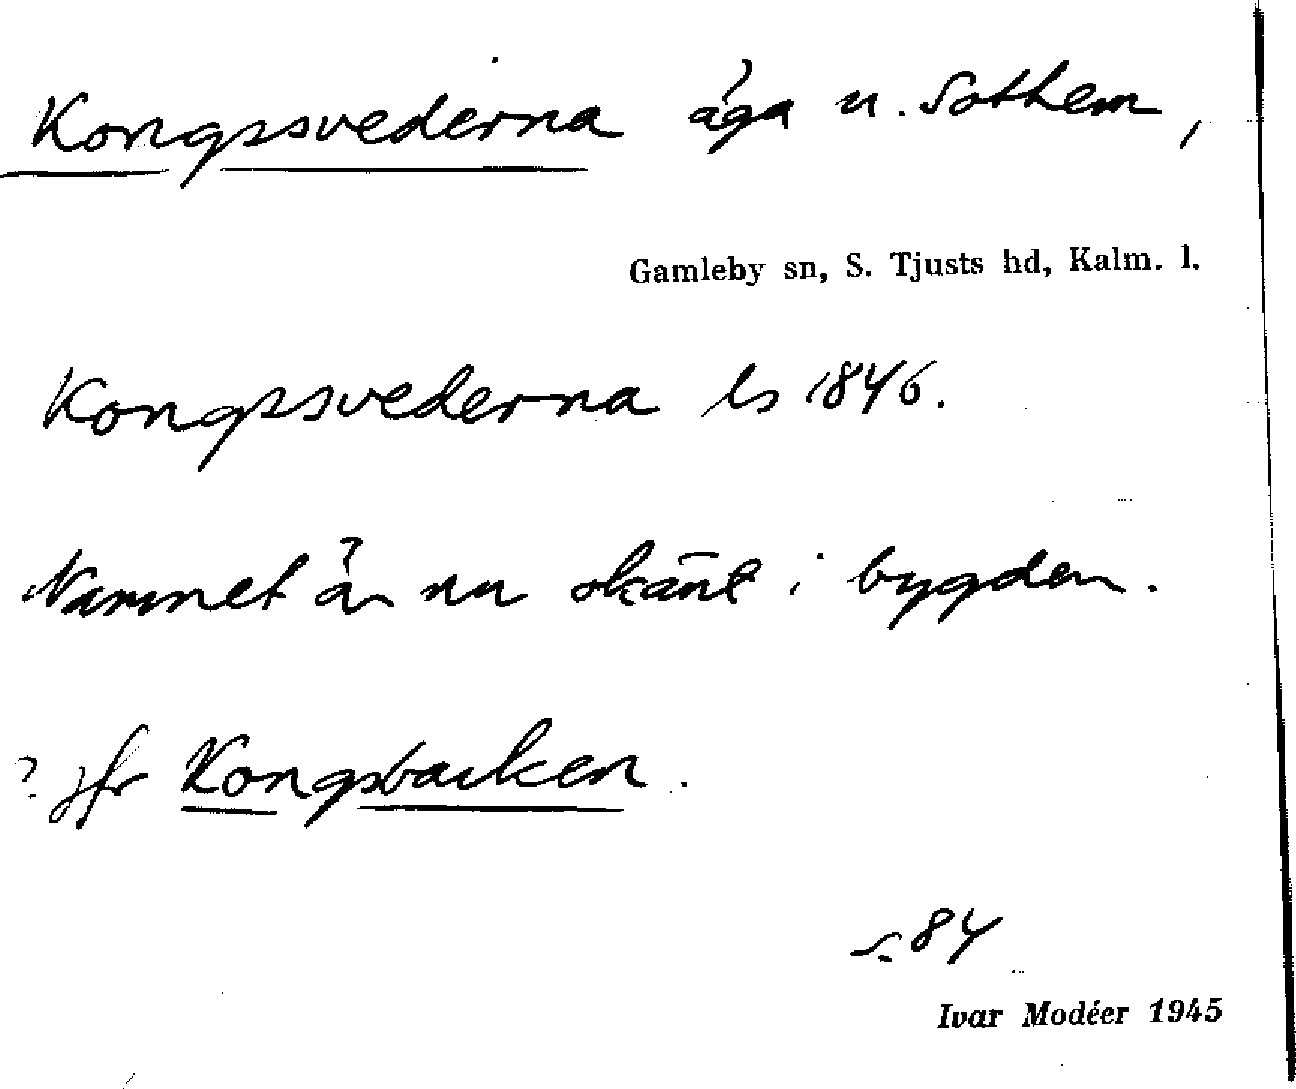 Kongssvederna äga u. Sothem,
Gamleby sn, S. Tjusts hd, Kalm. l.
Kongssvederna ls 1846.
Namnet är nu okänt i bygden.
? jfr Kongsbacken.
s. 84
Ivar Modéer 1945